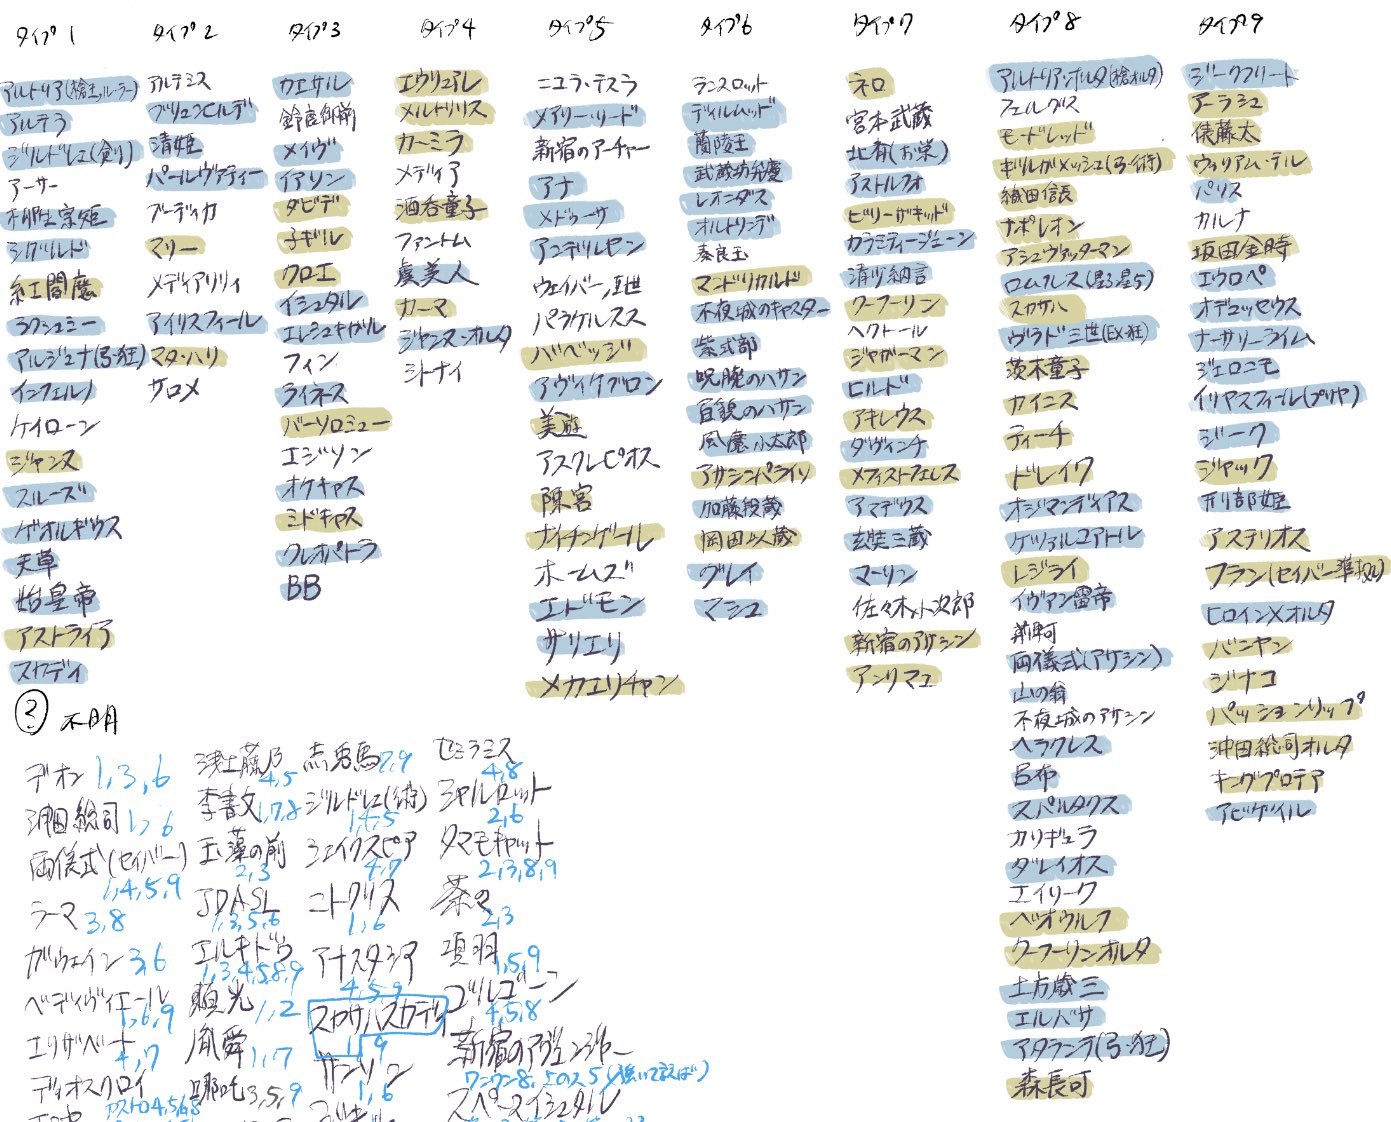 タイプ1
アルトリア(槍士,ルーラー)
アルテラ
ジルドレェ(剣)
アーサー
柳生宗矩
シグルルド
紅閻魔
ラクシュミー
アルジュナ(弓・狂)
インフェルノ
ケイローン
ジャンヌ
スルーズ
ゲオルギウス
天草
始皇帝
アストライア
スカディ
タイプ2
アルテミス
ブリュンヒルデ
清姫
パールヴァティー
ブーディカ
マリー
メディアリリィ
アイリスフィール
マタ・ハリ
サロメ
タイプ3
カエサル
鈴鹿御前
メイヴ
イアソン
ダビデ
子ギル
クロエ
イシュタル
エレシュキガル
フィン
ライネス
バーソロミュー
エジソン
オケキャス
ミドキャス
クレオパトラ
BB
タイプ4
エウリュアレ
メルトリリス
カーミラ
メディア
酒呑童子
ファントム
虞美人
カーマ
ジャンヌ・オルタ
シトナイ
タイプ5
ニコラ・テスラ
メアリー・リード
新宿のアーチャー
アナ
メドゥーサ
アンデルセン
ウェイバー/Ⅱ世
パラケルスス
バベッジ
アヴィケブロン
美遊
アスクレピオス
陳宮
ナイチンゲール
ホームズ
エドモン
サリエリ
メカエリチャン
タイプ6
ランスロット
ディルムッド
蘭陵王
武蔵坊弁慶
レオニダス
オルトリンデ
秦良玉
マンドリカルド
不夜城のキャスター
紫式部
呪腕のハサン
百貌のハサン
風魔小太郎
アサシンパライソ
加藤段蔵
岡田以蔵
グレイ
マシュ
タイプ7
ネロ
宮本武蔵
北斎(お栄)
アストルフォ
ビリーザキッド
カラミティージェーン
清少納言
クーフーリン
ヘクトール
ジャガーマン
ヒルド
アキレウス
ダヴィンチ
メフィストフェレス
アマデウス
玄奘三蔵
マーリン
佐々木小次郎
新宿のアサシン
アンリマユ
タイプ8
アルトリア・オルタ(槍オルタ)
フェルグス
モードレッド
ギルガメッシュ(弓・術)
織田信長
ナポレオン
アシュヴァッターマン
ロムルス(星3,星5)
スカサハ
ヴラド三世(EX・狂)
茨木童子
カイニス
ティーチ
ドレイク
オジマンディアス
ケツァルコアトル
レジライ
イヴァン雷帝
荊軻
両儀式(アサシン)
山の翁
不夜城のアサシン
ヘラクレス
呂布
スパルタクス
カリギュラ
ダレイオス
エイリーク
ベオウルフ
クーフーリンオルタ
土方歳三
エルバサ
アタランテ(弓・狂)
森長可
タイプ9
ジークフリート
アーラシュ
俵藤太
ウィリアム・テル
パリス
カルナ
坂田金時
エウロペ
オデュッセウス
ナーサリーライム
ジェロニモ
イリヤスフィール(プリヤ)
ジーク
ジャック
刑部姫
アステリオス
フラン(セイバー準拠)
ヒロインXオルタ
バニヤン
ジナコ
パッションリップ
沖田総司オルタ
キングプロテア
アビゲイル
? 不明
デオン 1,3,6
沖田総司 1,6
両儀式(セイバー)
1,4,5,9
ラーマ 3,8
ガウェイン 3,6
ベディヴィエール
1,6,9
エリザベート
4,7
ディオスクロイ
浅上藤乃
4,5
李書文 1,7,8
玉藻の前
2,3
JDASL
1,3,5,6
エルキドゥ
1,3,4,5,8,9
頼光 1,2
胤舜 1,7
哪吒 3,5,9
赤兎馬 7,9
ジルドレェ(術)
1,4,5
シェイクスピア
4,7
ニトクリス
1,6
アナスタシア
4,5,9
スカサハスカディ
1,9
サンソン
1,6
セミラミス
4,8
シャルロット
2,6
タマモキャット
2,3,8,9
茶々
2,3
項羽
1,5,9
ゴルゴーン
4,5,8
新宿のアヴェンジャー
ワンワン8,よのス5(強いて言えば)
スペースイシュタル